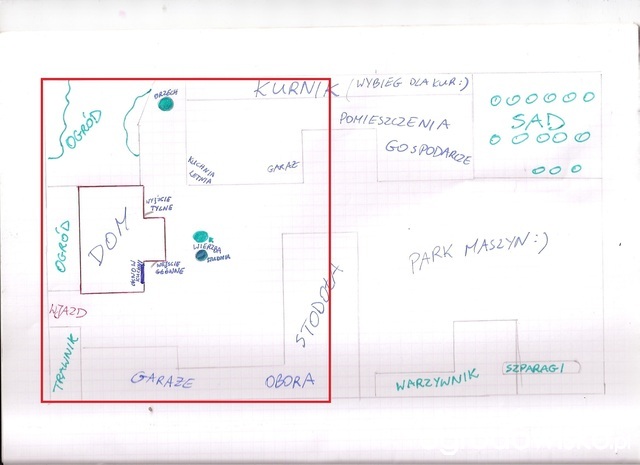 KURNIK (WYBIEG DLA KUR:)
ORZECH
OGRÓD
SAD
POMIESZCZENIA
GOSPODARZE
KUCHNIA
LETNIA
GARAŻ
WYJŚCIE
TYLNE
DOM
OGRÓD
WIERZBA
STUDNIA
WEJŚCIE
GŁÓWNE
PARK MASZYN:)
STODOŁA
WJAZD
TRAWNIK
GARAŻE
OBORA
WARZYWNIK
SZPARAGI